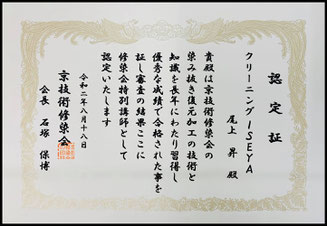 認定証
クリーニングISEYA
尾上 昇 殿
貴殿は京技術修染会の
染み抜き復元加工の技術と
知識を長年にわたり習得し
優秀な成績で合格された事を
証し審査の結果ここに
修染会特別講師として
認定いたします
令和二年八月十八日
京技術修染会
会長 石塚 保博